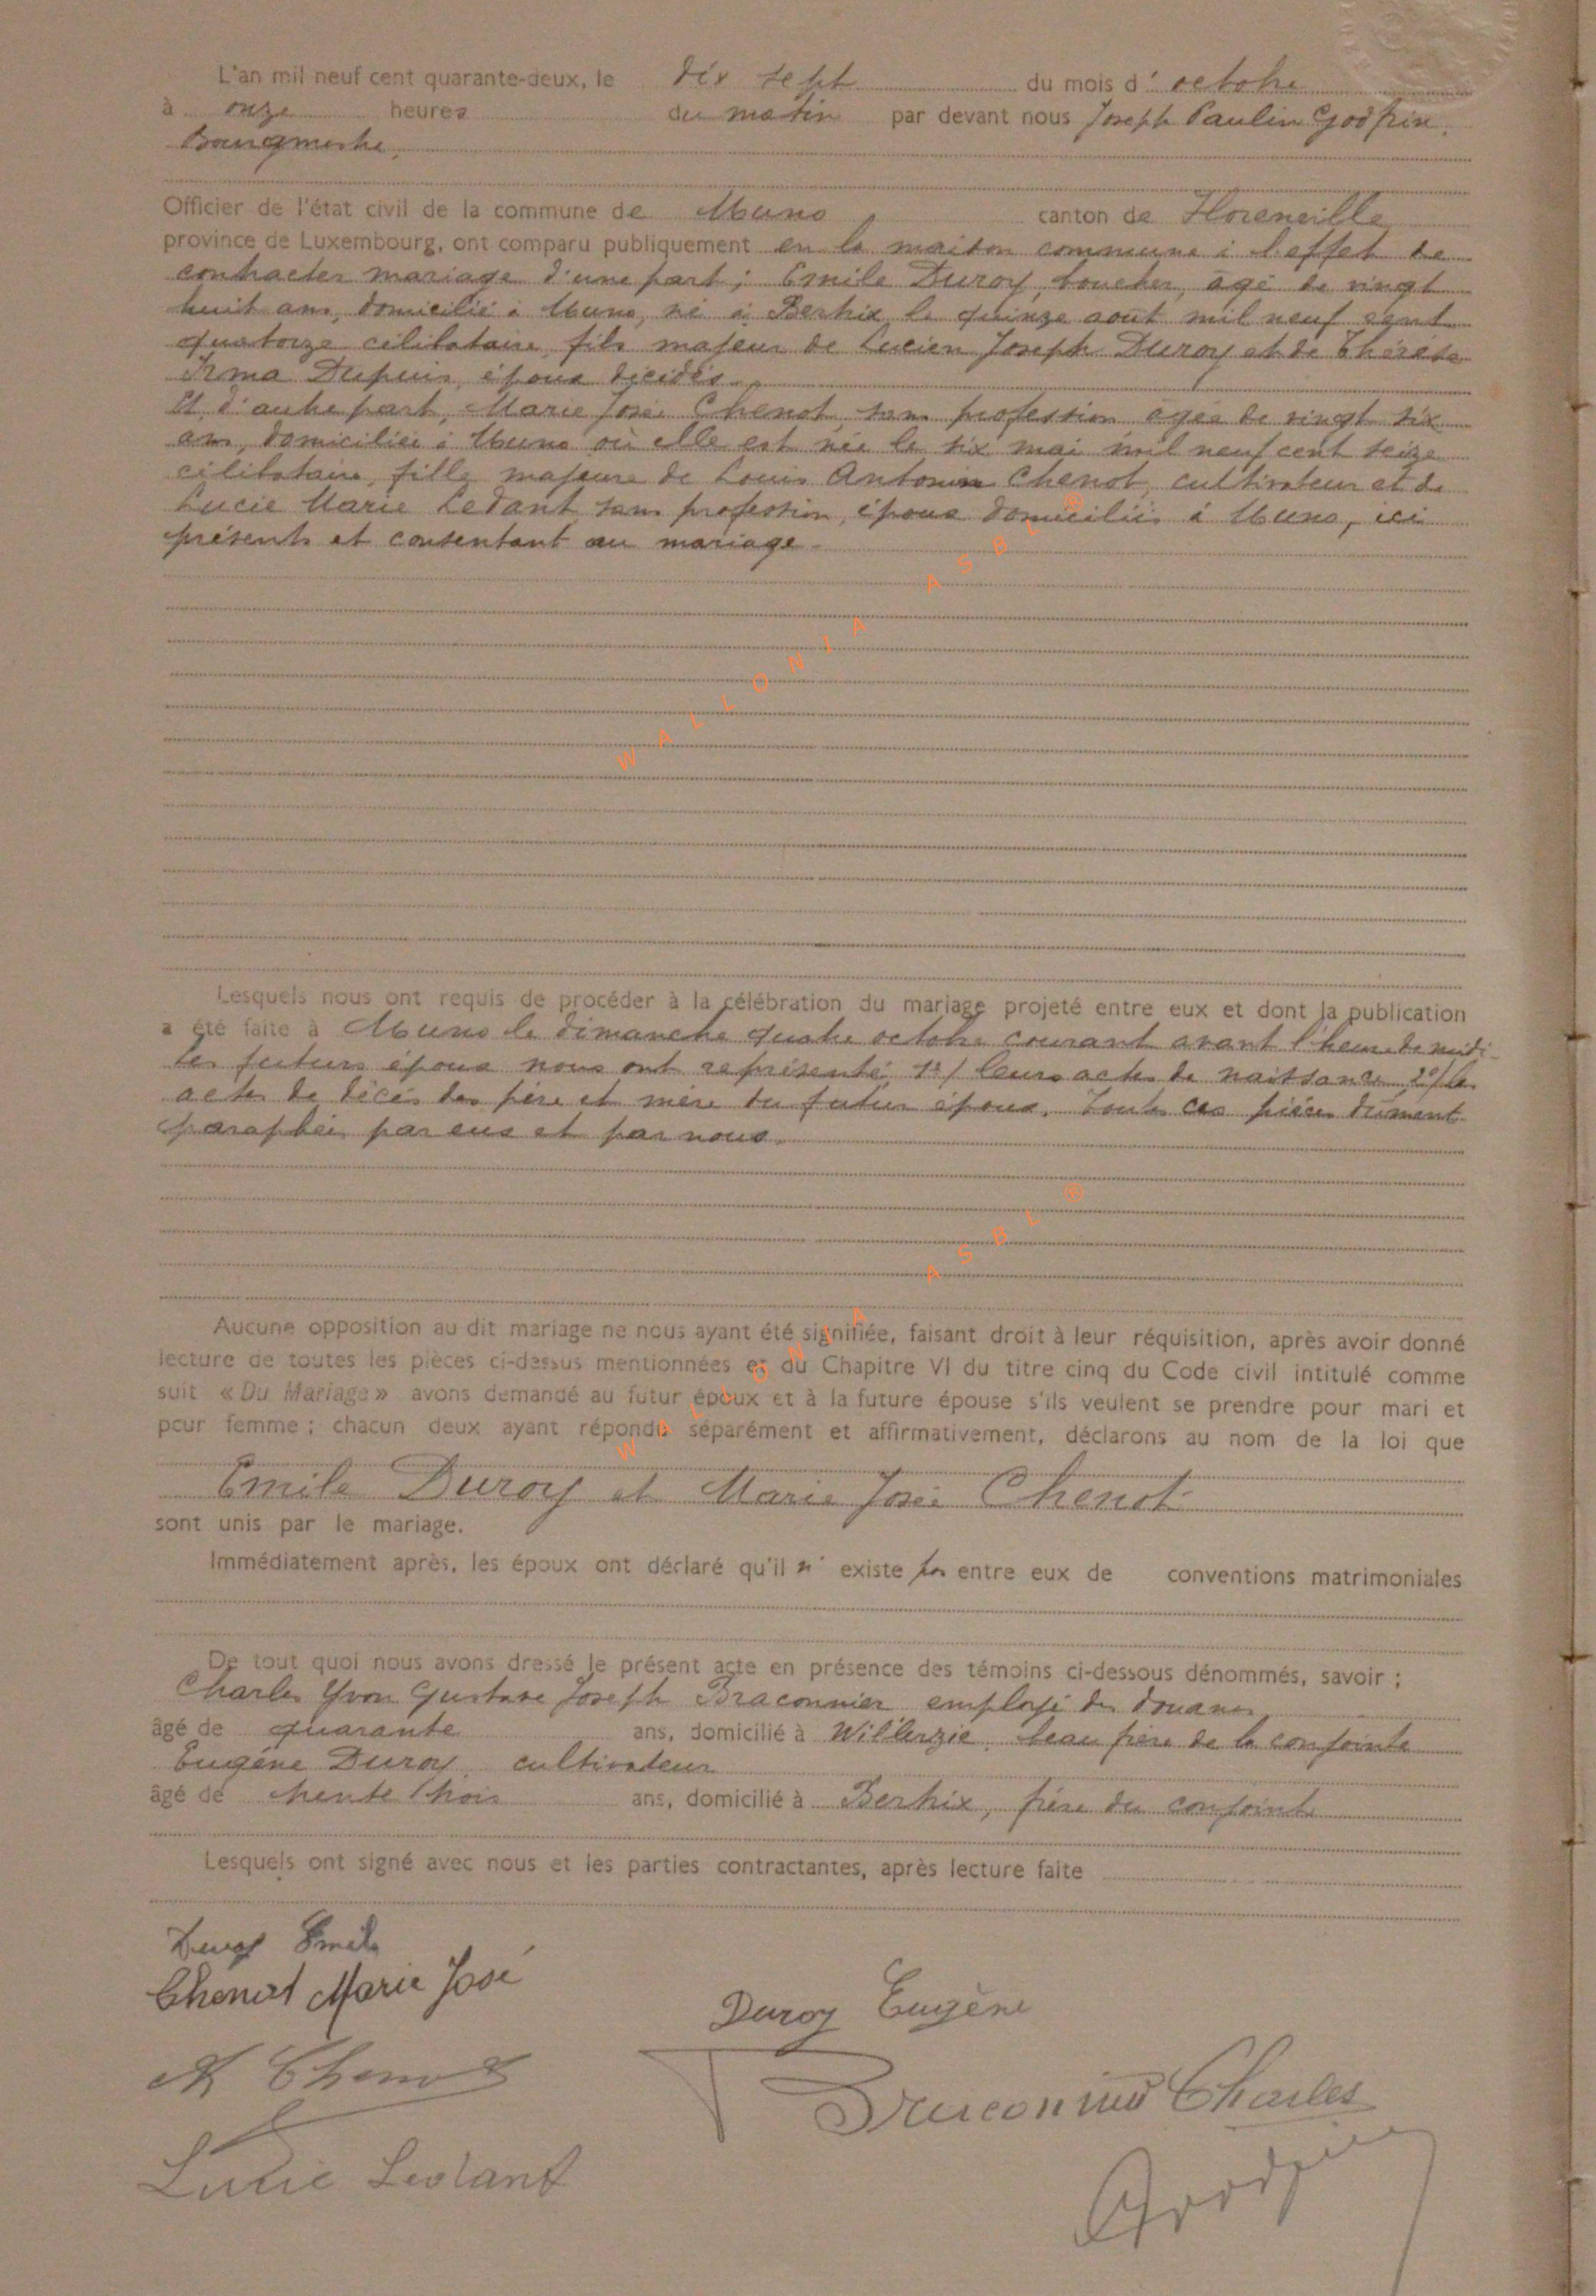 L'an mil neuf cent quarante-deux, le dix sept du mois d' octobre
à onze heures du matin par devant nous Joseph Paulin Godfrin,
Bourgmestre,
Officier de l'état civil de la commune de Muno canton de Florenville
province de Luxembourg, ont comparu publiquement en la maison commune à l'effet de
contracter mariage d'une part; Emile Duroy, boucher, âgé de vingt
huit ans, domicilié à Muno, né à Bertrix le quinze août mil neuf cent
quatorze célibataire fils majeur de Lucien Joseph Duroy et de Thérèse
Irma Dupuis, époux décédés.
Et d'autre part, Marie José Chenot, sans profession âgée de vingt six
ans, domiciliée à Muno où elle est née le six mai mil neuf cent seize
célibataire, fille majeure de Louis Antonin Chenot, cultivateur et de
Lucie Marie Ledant sans profession, époux domiciliés à Muno, ici
présents et consentant au mariage.
Lesquels nous ont requis de procéder à la célébration du mariage projeté entre eux et dont la publication
a été faite à Muno le dimanche quatre octobre courant avant l'heure de midi.
les futurs époux nous ont représenté 1°/ leurs actes de naissance, 2°/ les
actes de décès des père et mère du futur époux. Toutes ces pièces dûment
paraphées par eux et par nous.
Aucune opposition au dit mariage ne nous ayant été signifiée, faisant droit à leur réquisition, après avoir donné
lecture de toutes les pièces ci-dessus mentionnées et du Chapitre VI du titre cinq du Code civil intitulé comme
suit « Du Mariage » avons demandé au futur époux et à la future épouse s'ils veulent se prendre pour mari et
pour femme ; chacun deux ayant répondu séparément et affirmativement, déclarons au nom de la loi que
Emile Duroy et Marie José Chenot
sont unis par le mariage.
Immédiatement après, les époux ont déclaré qu'il n' existe pas entre eux de conventions matrimoniales
De tout quoi nous avons dressé le présent acte en présence des témoins ci-dessous dénommés, savoir ;
Charles Yvon Gustave Joseph Braconnier employé des douanes
âgé de quarante ans, domicilié à Willerzie, beau frère de la conjointe
Eugène Duroy, cultivateur
âgé de trente trois ans, domicilié à Bertrix, frère du conjoint
Lesquels ont signé avec nous et les parties contractantes, après lecture faite
Duroy Emile
Chenot Marie José
Duroy Eugène
A Chenot
Braconnier Charles
Lucie Ledant
Godfrin
WALLONIA ASBL ®
WALLONIA ASBL ®